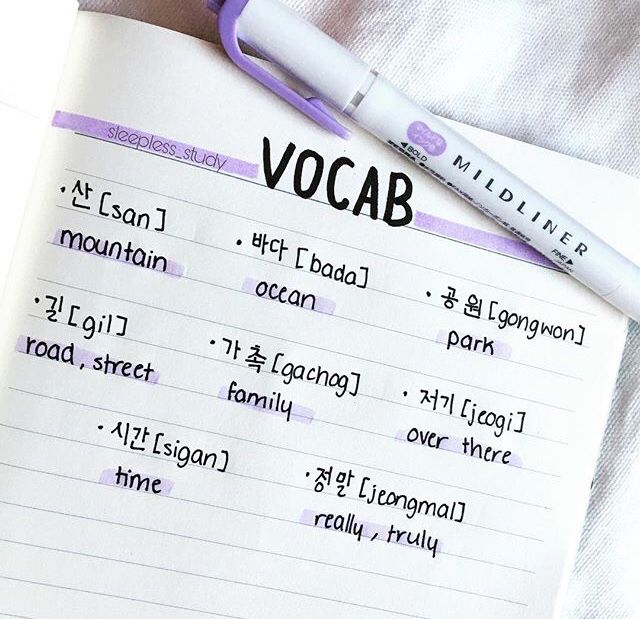 sleepless_study
VOCAB
BOLD MILDLINER FINE
• 산 [san]
mountain
• 바다 [bada]
ocean
• 공원 [gongwon]
park
• 길 [gil]
road, street
• 가촉 [gachog]
family
• 저기 [jeogi]
over there
• 시간 [sigan]
time
• 정말 [jeongmal]
really, truly